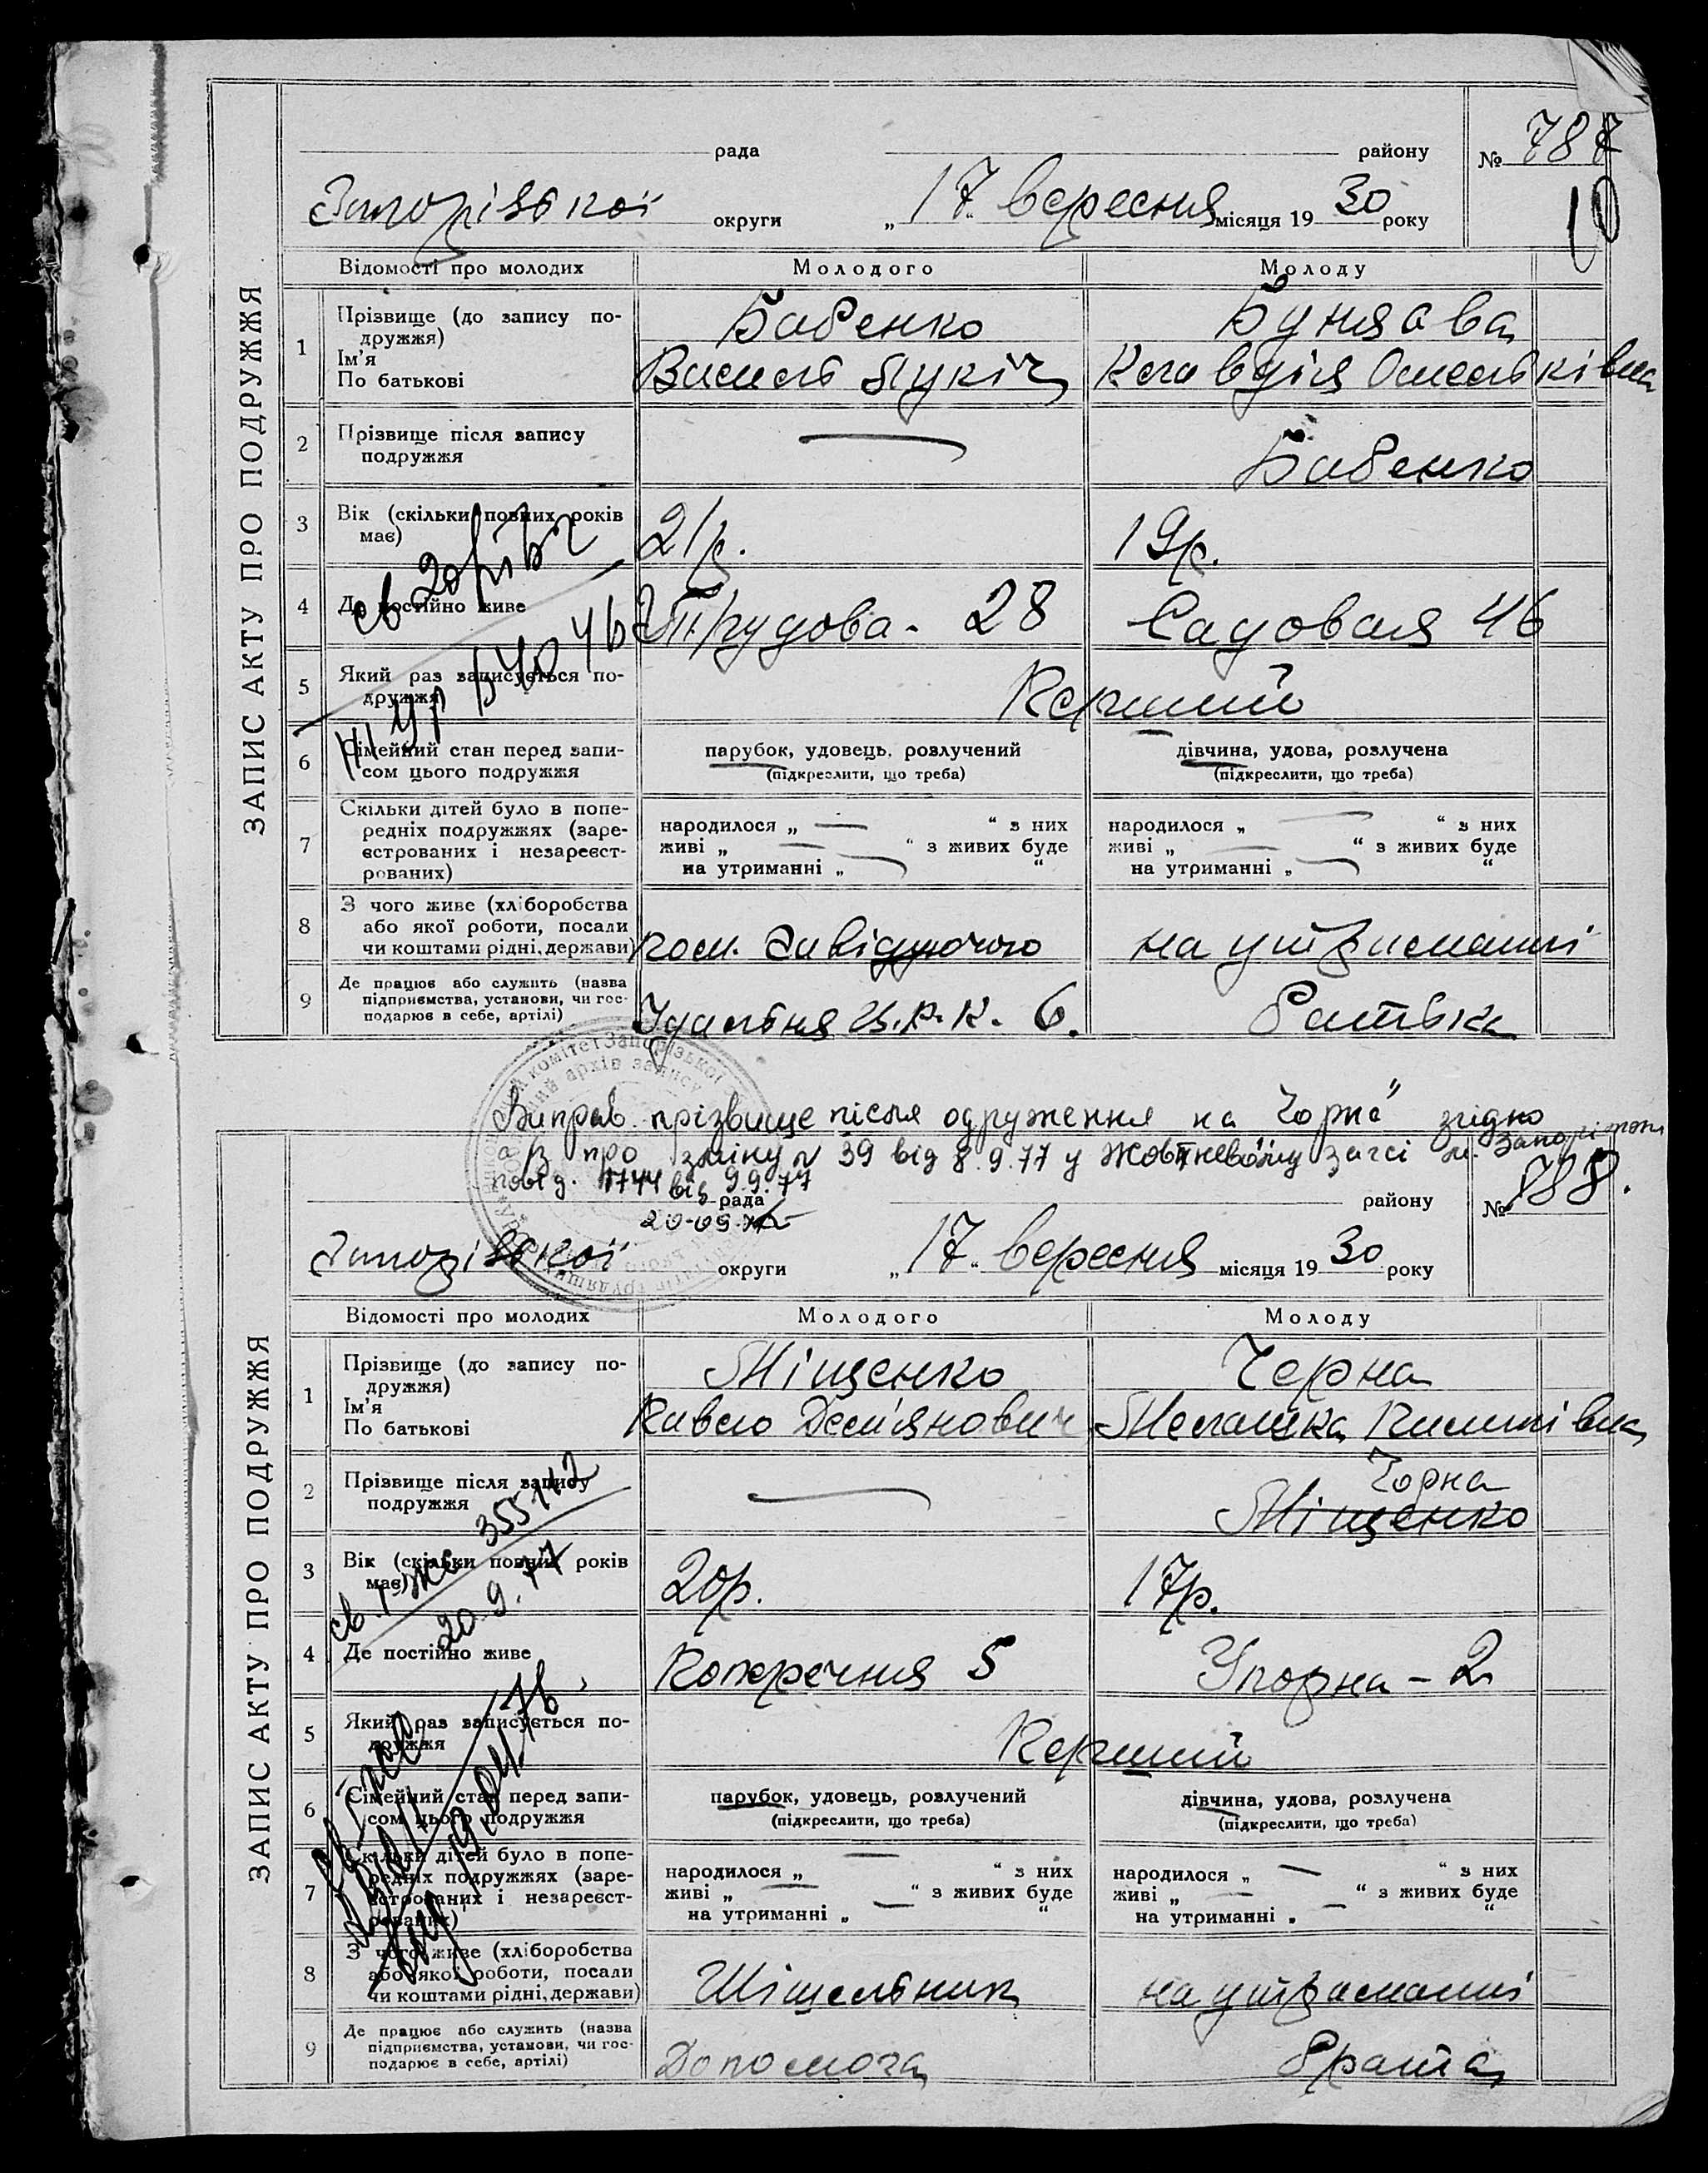 ЗАПИС АКТУ ПРО ПОДРУЖЖЯ
рада району № 787
10
Запорізької округи „17“ вересня місяця 1930 року
Відомості про молодих Молодого Молоду
1 Прізвище (до запису по-
дружжя)
Ім'я
По батькові
Бабенко
Василь Лукіч
Клавдія
2 Прізвище після запису
подружжя
— Бабенко
3 Вік (скільки повних років
має)
21р. 19р.
4 Де постійно живе
Трудова - 28 Садовая 46
5 Який раз записується по-
дружжя
Перший
6 Сімейний стан перед запи-
сом цього подружжя
парубок, удовець, розлучений дівчина, удова, розлучена
(підкреслити, що треба) (підкреслити, що треба)
7 Скільки дітей було в попе-
редніх подружжях (заре-
єстрованих і незареєст-
рованих)
народилося „ — “ з них народилося „ — “ з них
живі „ — “ з живих буде живі „ — “ з живих буде
на утриманні „ — “ на утриманні „ — “
8 З чого живе (хліборобства
або якої роботи, посади
чи коштами рідні, держави)
пом. Завідуючого на утриманні
9 Де працює або служить (назва
підприємства, установи, чи гос-
подарює в себе, артілі)
Їдальня Ц.Р.К. 6. Батька
Виправ. прізвище після одруження на „Чорна“ згідно
а/з про зміну № 39 від 8.9.77 у Жовтневому загсі м. Запоріжжя
повід. 1744 від 9.9.77
20-09-77
ЗАПИС АКТУ ПРО ПОДРУЖЖЯ
рада району № 788.
Запорізької округи „17“ вересня місяця 1930 року
Відомості про молодих Молодого Молоду
1 Прізвище (до запису по-
дружжя)
Ім'я
По батькові
Міщенко Черна
Павло Дем'янович Мелашка Пилипівна
2 Прізвище після запису
подружжя
Чорна
— Міщенко
3 Вік (скільки повних років
має)
20р. 17р.
355142
20.9.77
4 Де постійно живе
Поперечня 5 Упорна - 2
5 Який раз записується по-
дружжя
Перший
6 Сімейний стан перед запи-
сом цього подружжя
парубок, удовець, розлучений дівчина, удова, розлучена
(підкреслити, що треба) (підкреслити, що треба)
7 Скільки дітей було в попе-
редніх подружжях (заре-
єстрованих і незареєст-
рованих)
народилося „ — “ з них народилося „ — “ з них
живі „ — “ з живих буде живі „ — “ з живих буде
на утриманні „ — “ на утриманні „ — “
8 З чого живе (хліборобства
або якої роботи, посади
чи коштами рідні, держави)
на утриманні
9 Де працює або служить (назва
підприємства, установи, чи гос-
подарює в себе, артілі)
Допомога Брата